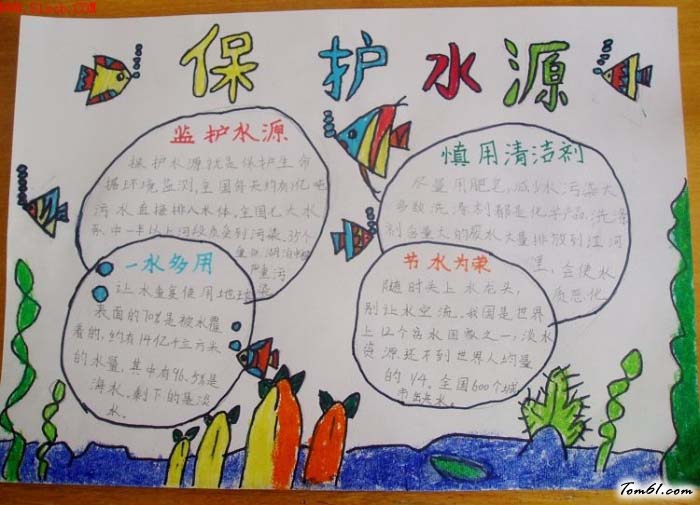 保护水源
监护水源
保护水源就是保护生命
据环境监测,全国每天约有1亿吨
污水直接排入水体。全国七大水
系中一半以上河段水质受到污染。35个
重点湖泊中
严重污
染
一水多用
让水重复使用地球
表面的70%是被水覆
着的,约有14亿千立方米
的水量,其中有96.5%是
海水。剩下的是淡
水。
慎用清洁剂
尽量用肥皂,减少水污染大
多数洗涤剂都是化学产品,洗涤
剂含量大的废水大量排放到江河
里,会使水
质恶化
节水为荣
随时关上水龙头,
别让水空流。我国是世界
上12个贫水国家之一,淡水
资源还不到世界人均量
的1/4。全国600个城
市缺水。
Tom61.com